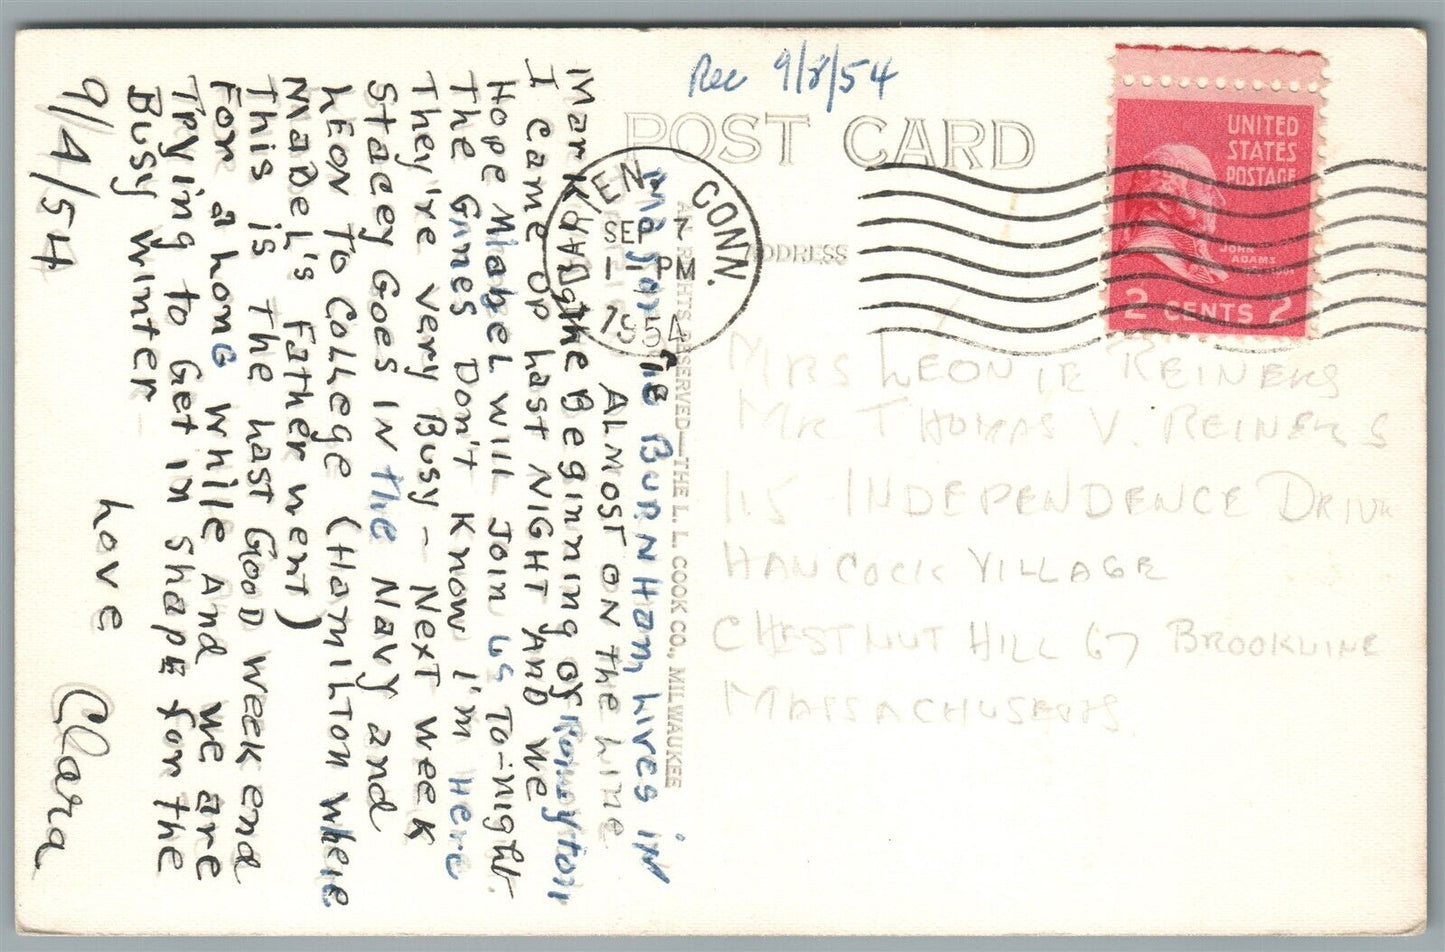 Rec 9/8/54
POST CARD
ADDRESS
CONN.
SEP 7
11 PM
1954
UNITED
STATES
POSTAGE
JOHN
ADAMS
2 CENTS 2
ALL RIGHTS RESERVED—THE L. L. COOK CO., MILWAUKEE
MRS LEONIE REINERS
MR THOMAS V. REINERS
115 INDEPENDENCE DRIVE
HANCOCK VILLAGE
CHESTNUT HILL 67 BROOKLINE
MASSACHUSETTS
Marjorie Burnham, Lives in
ALMOST ON THE LINE
MarKing the Beginning of
I came up Last NIGHT AND WE
Hope Mabel will Join us To-night.
The Gines Don't Know I'm Here
They're very Busy - Next week
Stacey Goes IN the Navy and
LEON To College (Hamilton where
Mabel's Father went)
This is The Last Good week end
For a Long while And we are
Trying to Get in Shape for the
Busy Winter -
Love Clara
9/4/54